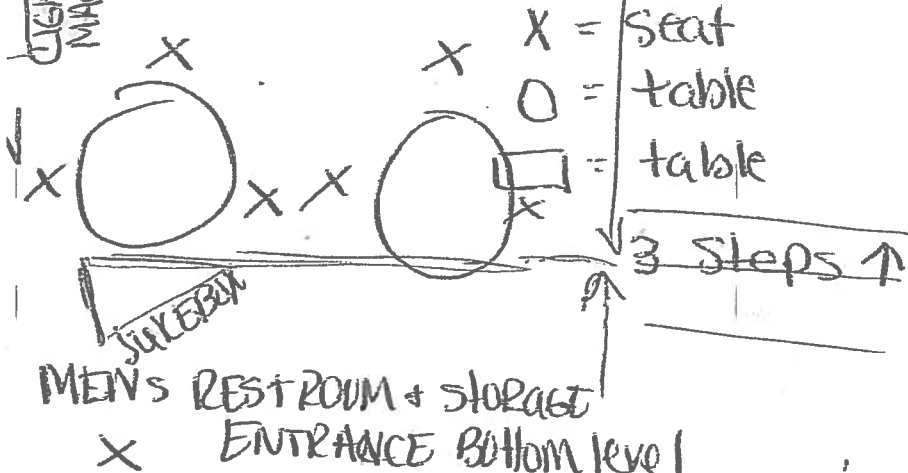 X = Seat
O = table
= table
3 Steps ↑
JUKEBOX
MENS RESTROOM + STORAGE
X ENTRANCE BOTTOM level